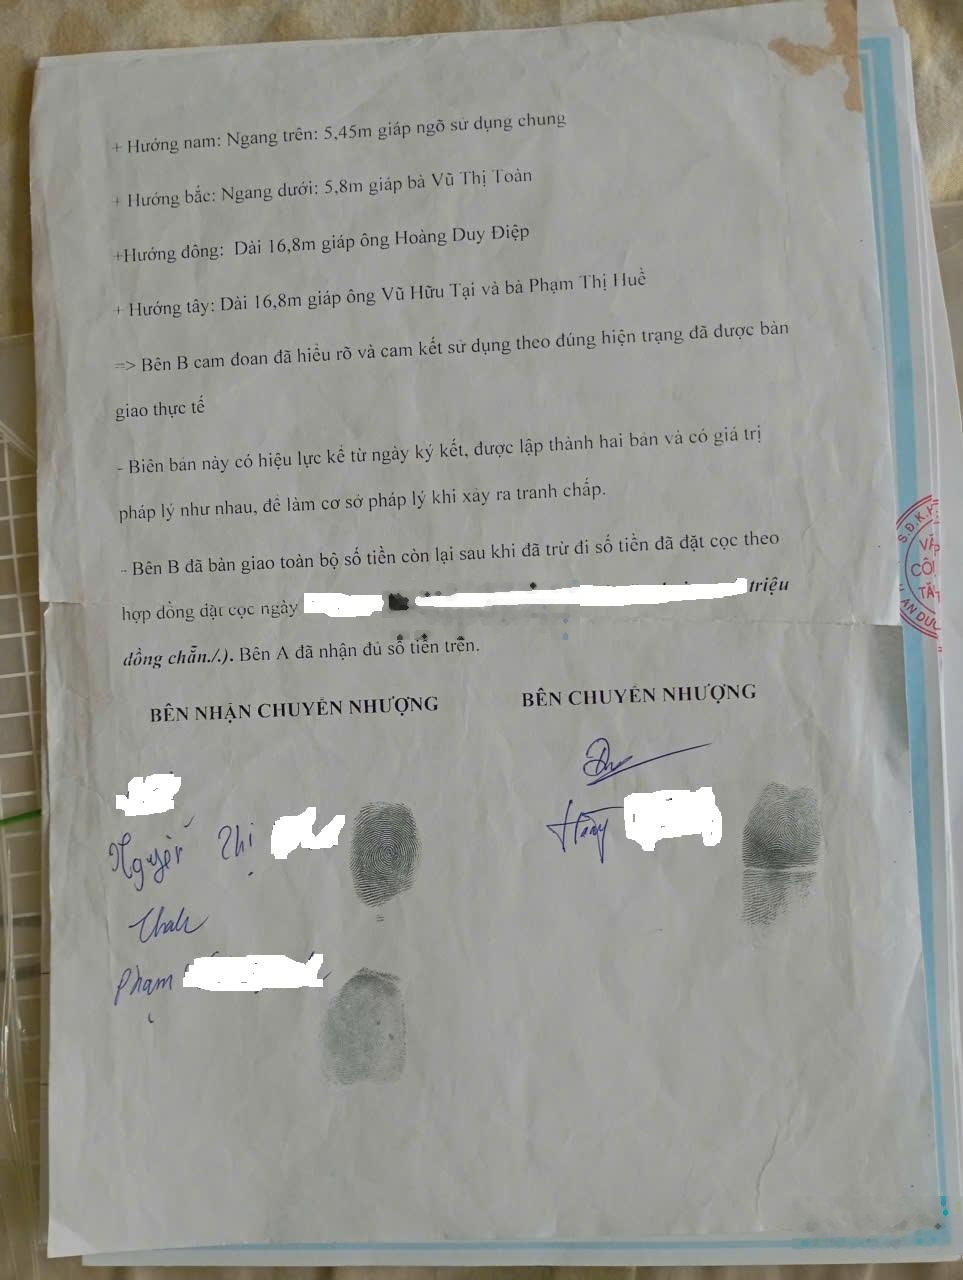 + Hướng nam: Ngang trên: 5,45m giáp ngõ sử dụng chung
+ Hướng bắc: Ngang dưới: 5,8m giáp bà Vũ Thị Toàn
+Hướng đông: Dài 16,8m giáp ông Hoàng Duy Điệp
+ Hướng tây: Dài 16,8m giáp ông Vũ Hữu Tại và bà Phạm Thị Huề
=> Bên B cam đoan đã hiểu rõ và cam kết sử dụng theo đúng hiện trạng đã được bàn
giao thực tế
- Biên bản này có hiệu lực kể từ ngày ký kết, được lập thành hai bản và có giá trị
pháp lý như nhau, để làm cơ sở pháp lý khi xảy ra tranh chấp.
- Bên B đã bàn giao toàn bộ số tiền còn lại sau khi đã trừ đi số tiền đã đặt cọc theo
hợp đồng đặt cọc ngày triệu
đồng chẵn./.). Bên A đã nhận đủ số tiền trên.
BÊN NHẬN CHUYỂN NHƯỢNG BÊN CHUYỂN NHƯỢNG
Nguyễn Thị
Phạm
S.Đ.K.K
VĂ
CÔ
TẤT
AN DƯƠ